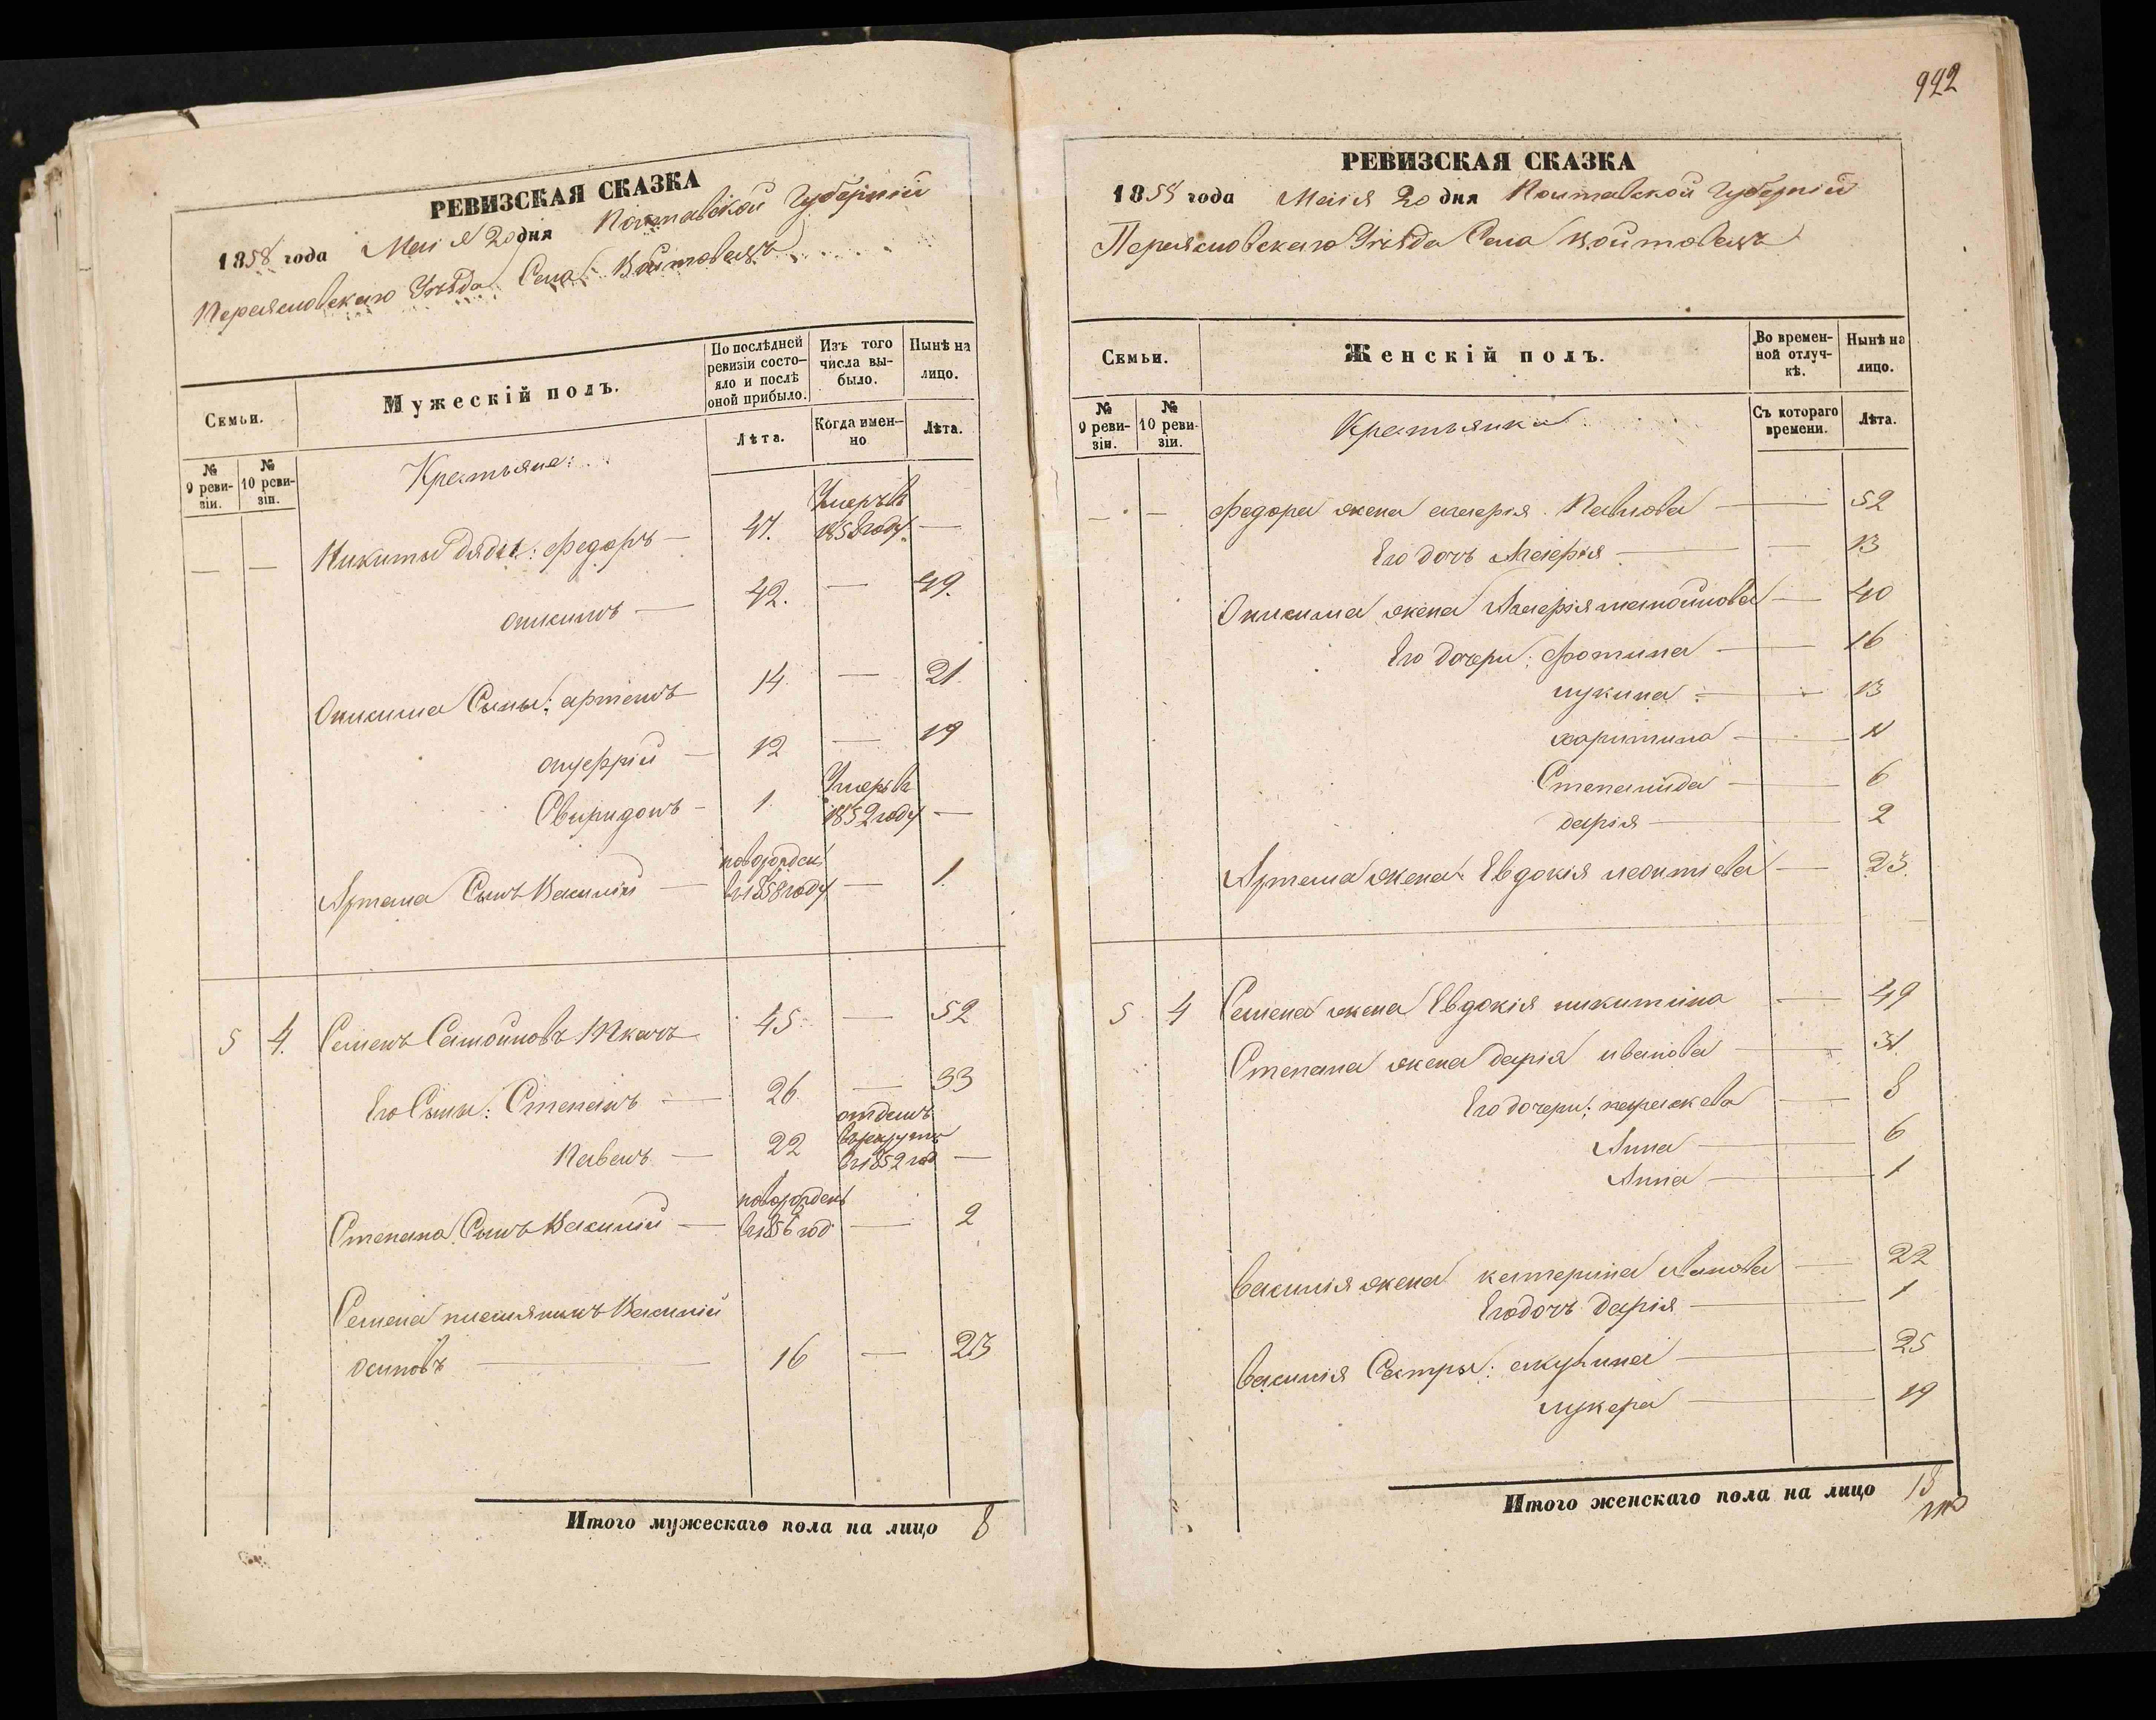 РЕВИЗСКАЯ СКАЗКА
1858 года Маія 20 дня Полтавской Губерніи
Переясловскаго Уѣзда Села Войтовецъ
Семьи.
Мужескій полъ.
По послѣдней ревизіи состояло и послѣ оной прибыло.
Изъ того числа выбыло.
Нынѣ на лицо.
№ 9 ревизіи.
№ 10 ревизіи.
Крестьяне:
Лѣта.
Когда именно
Лѣта.
— — Никиты дядья: Федоръ — 47. Умеръ въ 1858 году. —
Онисимъ — 42. — 49.
Онисима Сыны: артемъ 14 — 21
онуфрій — 12 — 19
Свиридонъ — 1. Умеръ въ 1852 году —
Артема Сынъ Василій — новорожден въ 1858 году — 1.
5 4. Семенъ Самойловъ Ткачъ 45 — 52
Его Сыны: Степанъ — 26 — 33
Павелъ — 22 отданъ в рекруты въ 1852 год —
Степана Сынъ Василій — новорожден въ 1856 год — 2
Семена племянникъ Василій
осиповъ — 16 — 23
Итого мужескаго пола на лицо 8
992
РЕВИЗСКАЯ СКАЗКА
1858 года Маія 20 дня Полтавской Губерніи
Переясловскаго Уѣзда Села Войтовецъ
Семьи.
Женскій полъ.
Во временной отлучкѣ.
Нынѣ на лицо.
№ 9 ревизіи.
№ 10 ревизіи.
Крестьянки
Съ котораго времени.
Лѣта.
— — Федора жена марія Павлова — 52
Его дочь Марія — — 13
Онисима жена Марія самойлова — 40
Его дочери: Фотина — 16
лукина — — 13
харитина — 11
Степанида — 6
дарія — 2
Артема жена Евдокія леонтіева — 23
5 4 Семена жена Евдокія никитина — 49
Степана жена дарія иванова — 31
Его дочери: параскева — 8
Анна — 6
Анна — 1
василія жена катерина иванова — 22
Его дочь Дарія — 1
василія Сестры: акулина — 25
лукера — 19
Итого женскаго пола на лицо 18